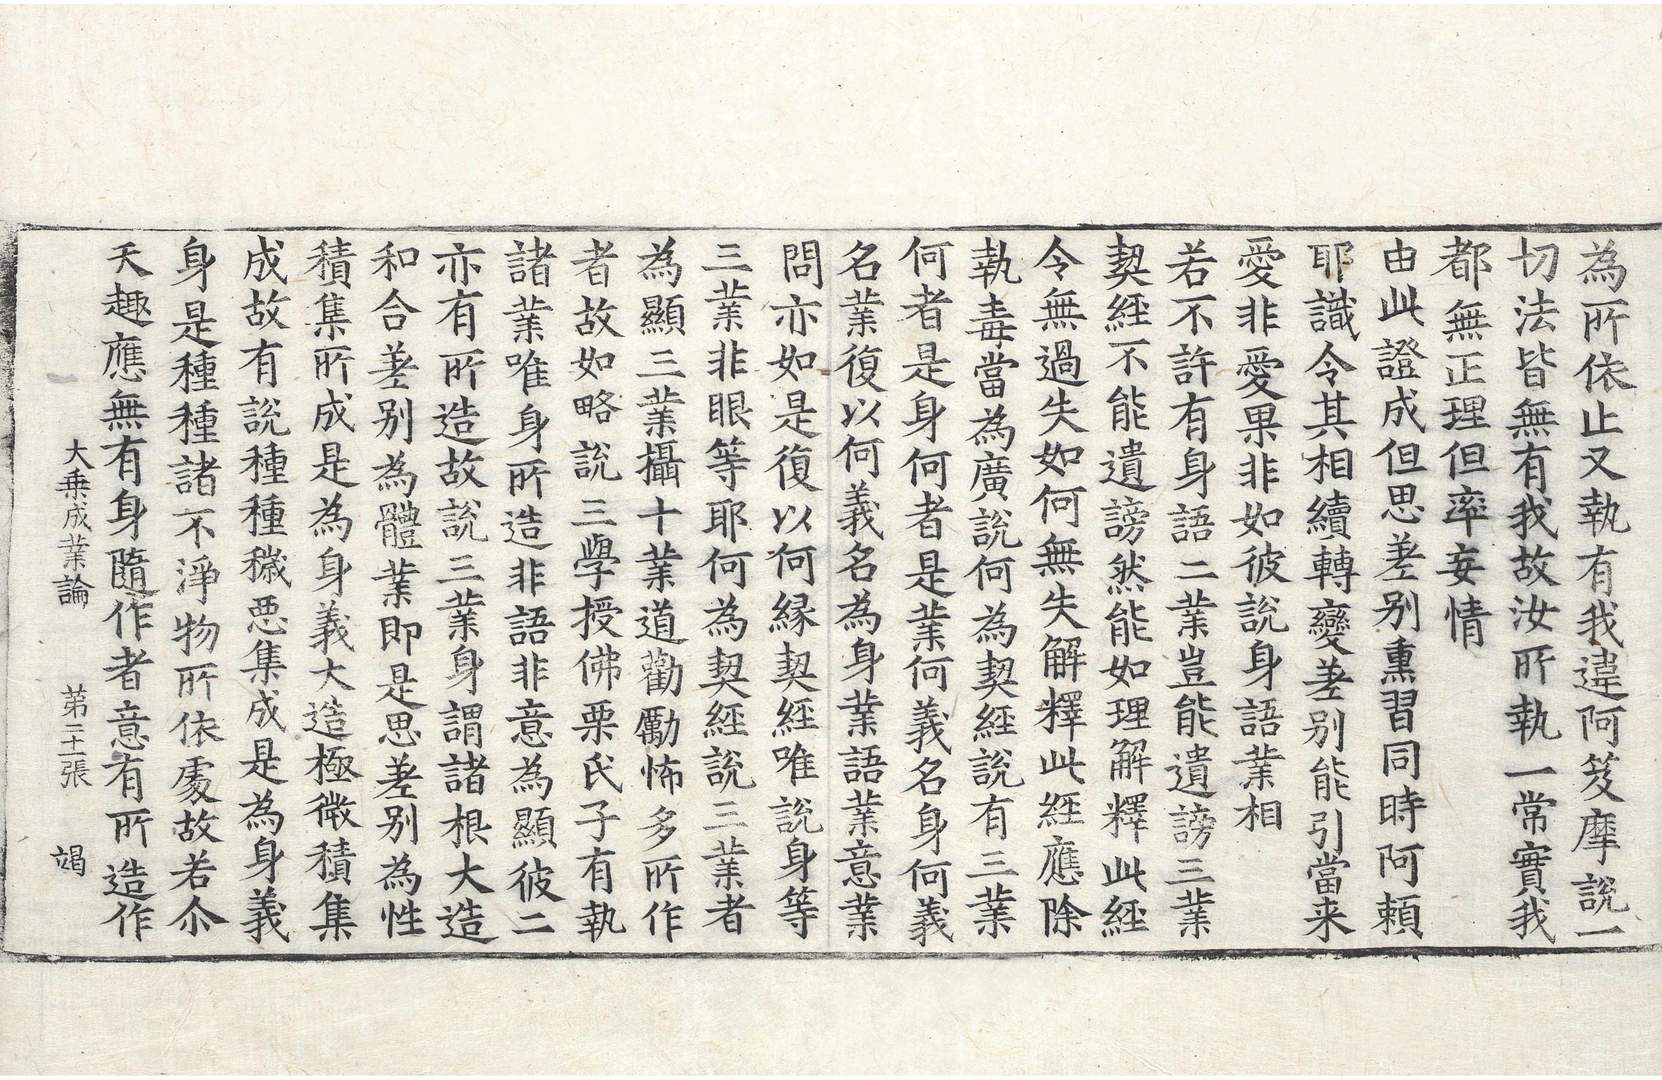 為所依止又執有我違阿笈摩說一
切法皆無有我故汝所執一常實我
都無正理但率妄情
由此證成但思差別熏習同時阿賴
耶識令其相續轉變差別能引當来
愛非愛果非如彼說身語業相
若不許有身語二業豈能遺謗三業
契經不能遺謗然能如理解釋此經
令無過失如何無失解釋此經應除
執毒當為廣說何為契經說有三業
何者是身何者是業何義名身何義
名業復以何義名為身業語業意業
問亦如是復以何緣契經唯說身等
三業非眼等耶何為契經說三業者
為顯三業攝十業道勸勵怖多所作
者故如略說三學授佛栗氏子有執
諸業唯身所造非語非意為顯彼二
亦有所造故說三業身謂諸根大造
和合差別為體業即是思差別為性
積集所成是為身義大造極微積集
成故有說種種穢惡集成是為身義
身是種種諸不淨物所依處故若尒
天趣應無有身隨作者意有所造作
大乘成業論 第二十張 竭